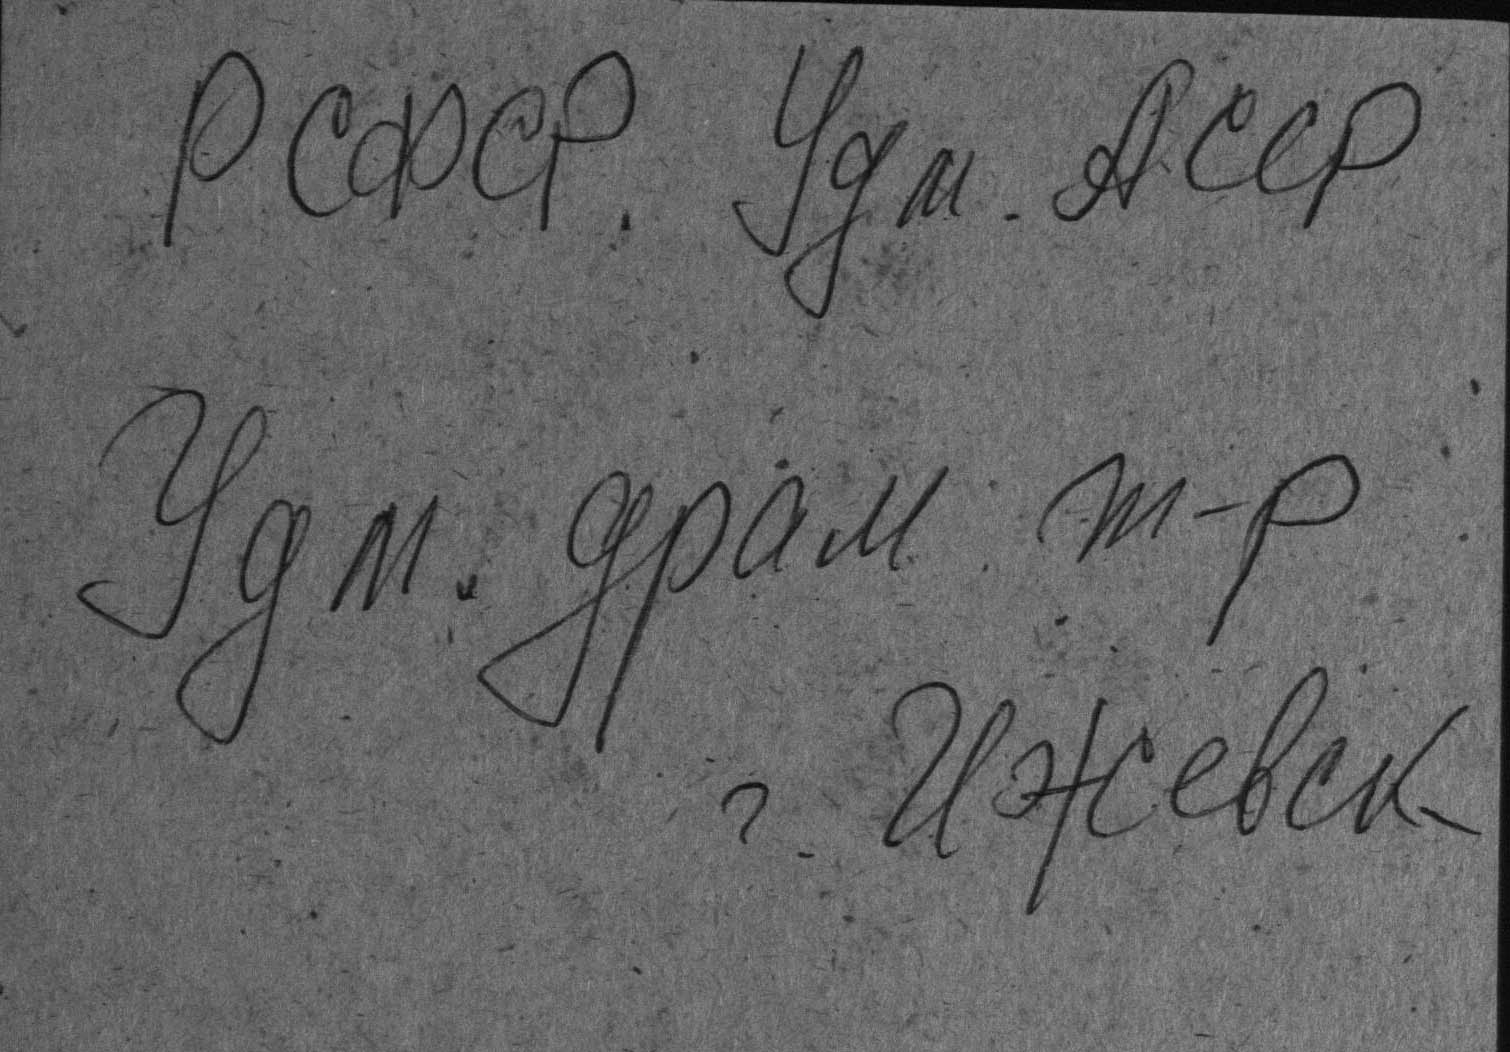 РСФСР. Удм. АССР
Удм. драм. т-р
г. Ижевск